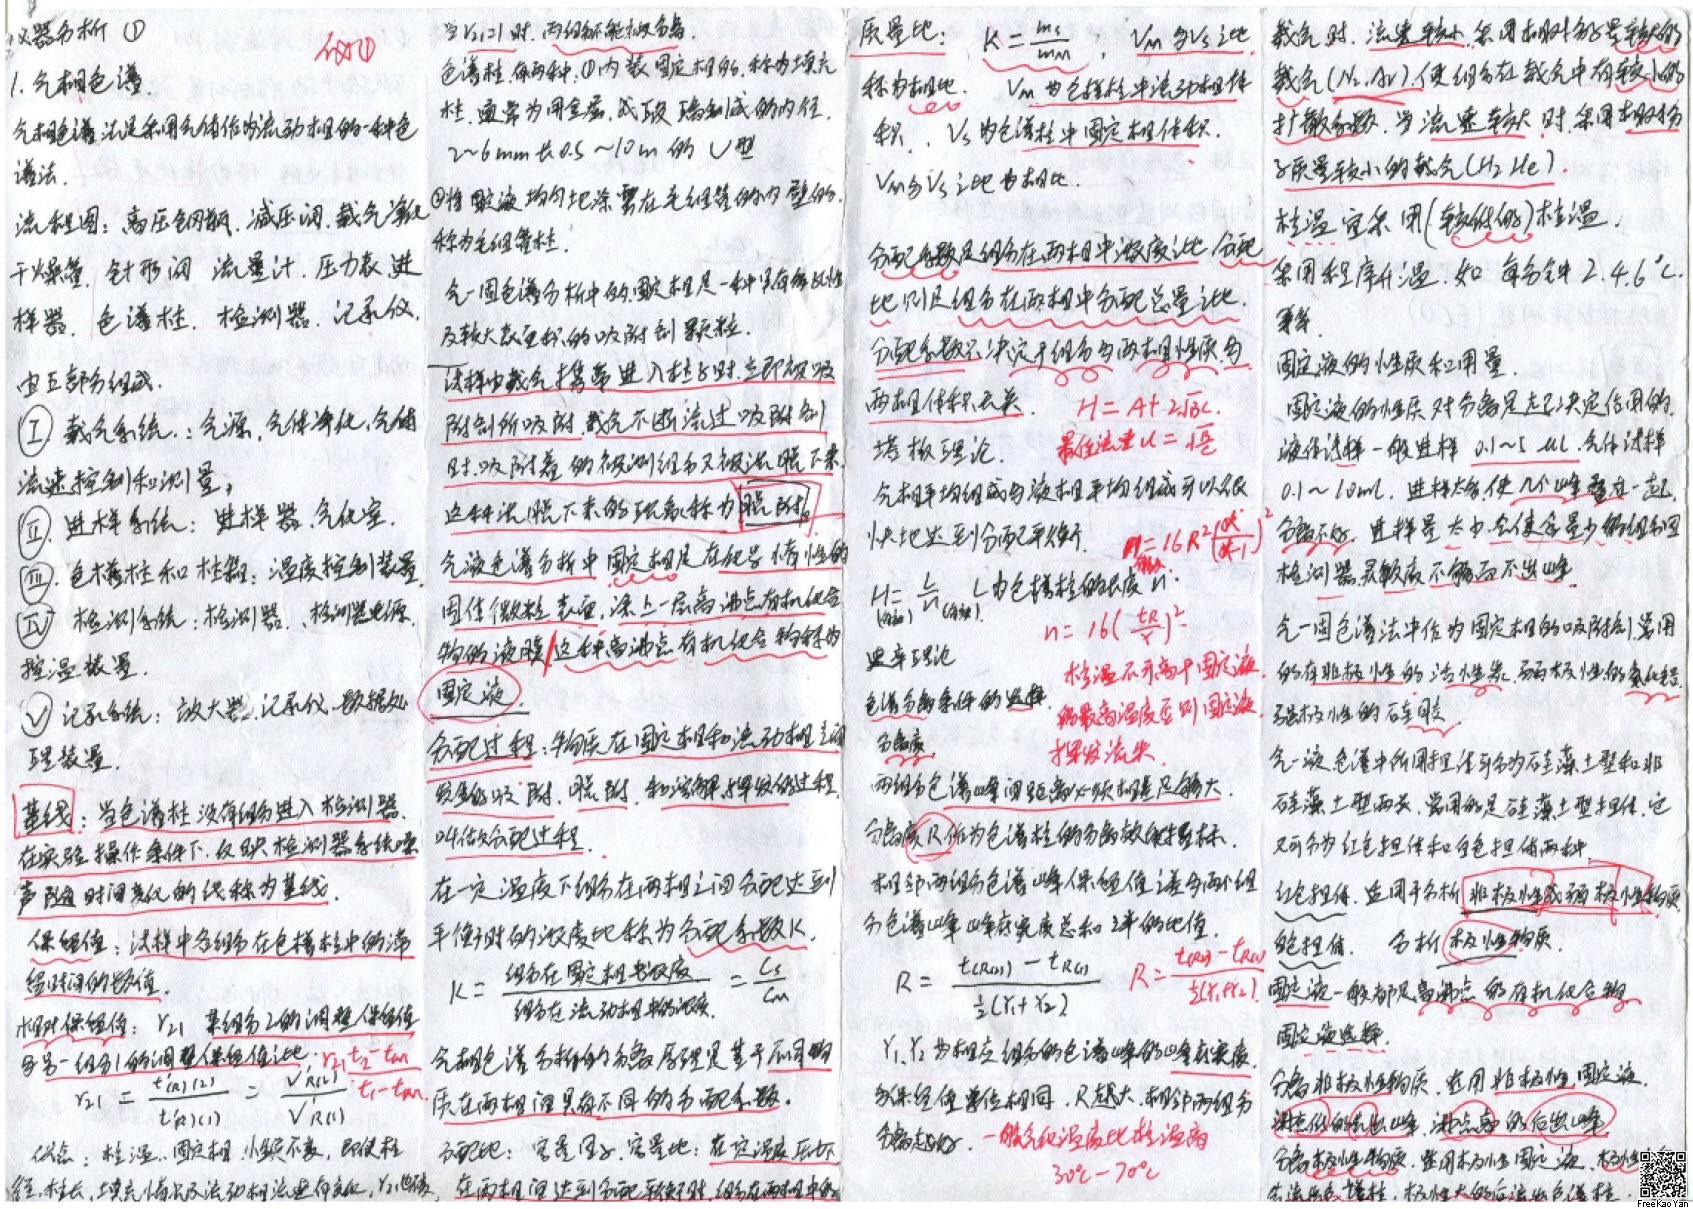 仪器分析 ①
仪①
1. 气相色谱
气相色谱法是采用气体作为流动相的一种色
谱法.
流程图: 高压钢瓶. 减压阀. 载气净化
干燥管. 针形阀 流量计. 压力表 进
样器. 色谱柱. 检测器. 记录仪.
由五部分组成.
Ⅰ 载气系统: 气源, 气体净化, 气体
流速控制和测量;
Ⅱ. 进样系统: 进样器. 气化室.
Ⅲ. 色谱柱和柱箱: 温度控制装置.
Ⅳ 检测系统: 检测器、检测器电源.
控温装置.
Ⅴ 记录系统: 放大器. 记录仪. 数据处
理装置.
基线: 当色谱柱没有组分进入检测器.
在实验操作条件下, 反映检测器系统噪
声随时间变化的线称为基线.
保留值: 试样中各组分在色谱柱中的滞
留时间的数值.
相对保留值: r21 某组分2的调整保留值
与另一组分1的调整保留值之比. r21 t2-tm
r21 = t'(R)(2) / t'(R)(1) = V'R(2) / V'R(1) t1-tm.
优点: 柱温. 固定相 小改不变, 即使柱
径. 柱长, 填充情况及流动相流速有变化, r21也
当r21=1时. 两组分不能被分离.
色谱柱有两种. ①内装固定相的. 称为填充
柱. 通常为用金属. 或玻璃制成的内径.
2~6mm 长0.5~10m 的 U型
②将固定液均匀地涂覆在毛细管的内壁的.
称为毛细管柱.
气-固色谱分析中的固定相是一种具有多孔性
及较大表面积的吸附剂颗粒.
试样由载气携带进入柱子时. 立即被吸
附剂所吸附. 载气不断流过吸附剂
时. 吸附着的被测组分又被洗脱下来.
这种洗脱下来的现象称为 脱附.
气液色谱分析中固定相是在化学惰性的
固体微粒表面, 涂上一层高沸点有机化合
物的液膜 这种高沸点有机化合物称为
固定液.
分配过程: 物质在固定相和流动相之间
发生的吸附. 脱附. 和溶解. 挥发的过程.
叫做分配过程.
在一定温度下组分在两相之间分配达到
平衡时的浓度比称为分配系数K.
K = 组分在固定相中浓度 / 组分在流动相中的浓度. = Cs / Cm
气相色谱分析的分离原理是基于不同物
质在两相间具有不同的分配系数.
分配比: 容量因子. 容量比: 在一定温度压力下
在两相间达到分配平衡时, 组分在两相中的
质量比: K = ms / mm, Vm与Vs之比
称为相比. Vm为色谱柱中流动相体
积. Vs为色谱柱中固定相体积.
Vm与Vs之比为相比.
分配系数是组分在两相中浓度之比. 分配
比则是组分在两相中分配总量之比.
分配系数只决定于组分与两相性质. 与
两相体积无关. H = A+2√BC.
塔板理论. 最佳流速 u = √B/C
气相平均组成与液相平均组成可以很
快地达到分配平衡. n = 16R²(α/α-1)²
H = L/n L为色谱柱的长度
n = 16(tR/Y)²
速率理论
柱温不可高于固定液
色谱分离条件的选择. 的最高温度否则固定液
分离度. 挥发流失.
两组分色谱峰间距离必须相差足够大.
分离度R作为色谱柱的分离效能指标.
相邻两组分色谱峰保留值之差与两个组
分色谱峰峰底宽度总和之半的比值.
R = t(R)(2) - t(R)(1) / ½(Y1+Y2) R = t(R)(2) - t(R)(1) / ½(Y1+Y2).
Y1, Y2 为相应组分的色谱峰的峰底宽度.
与保留值单位相同. R越大. 相邻两组分
分离越好. 一般气化温度比柱温高
30℃-70℃
载气时. 流速较小. 采用相对分子量较大的
载气(N2, Ar). 使组分在载气中有较小的
扩散系数. 当流速较大时. 采用相对分
子质量较小的载气(H2 He).
柱温宜采用(较低的)柱温.
采用程序升温. 如 每分钟2.4.6℃.
等等.
固定液的性质和用量.
固定液的性质对分离是起决定作用的.
液体试样一般进样 0.1~5 μL. 气体试样
0.1~10mL. 进样太多. 使几个峰叠在一起.
分离不好. 进样量太少. 会使含量少的组分因
检测器灵敏度不够而不出峰.
气-固色谱法中作为固定相的吸附剂. 常用
的有非极性的活性炭. 弱极性的氧化铝.
强极性的硅胶.
气-液色谱中所用担体可分为硅藻土型和非
硅藻土型两类. 常用的是硅藻土型担体. 它
又可分为红色担体和白色担体两种.
红色担体. 适用于分析非极性或弱极性物质
白色担体. 分析极性物质.
固定液一般都是高沸点的有机化合物
固定液选择.
分离非极性物质. 选用非极性固定液.
沸点低的先出峰, 沸点高的后出峰
分离极性物质. 选用极性固定液. 极性
先流出色谱柱. 极性大的后流出色谱柱.
FreeKaoYan